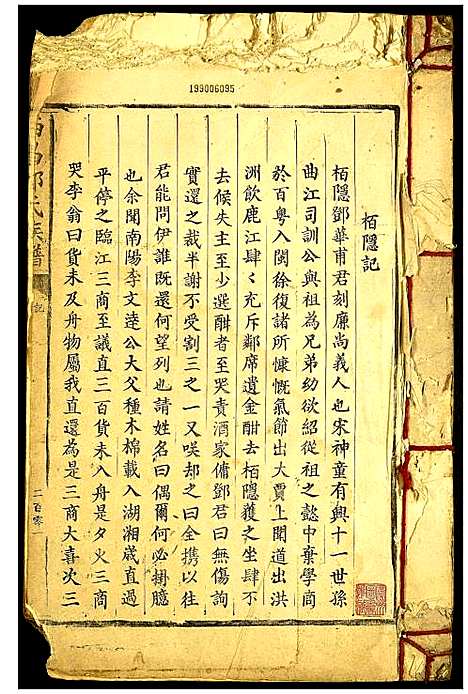 199006095
栢隱記
栢隱鄧華甫君刻廉尚義人也宋神童有興十一世孫
曲江司訓公與祖為兄弟幼欲紹從祖之懿中棄學商
於百粤入閩徐復諸所慷慨氣節出大賈上聞道出洪
洲飲鹿江肆肆充斥鄰席遺金酣去栢隱獲之坐肆不
去候失主至少選酣者至哭責酒家傭鄧君曰無傷詢
實還之裁半謝不受割三之一又咲却之曰全携以往
君能問伊誰既還何望列也請姓名曰偶爾何必掛臆
也余聞南陽李文逵公大父種木棉載入湖湘歲直過
平停之臨江三商至議直三百貨未入舟是夕火三商
哭李翁曰貨未及舟物屬我直還為是三商大喜次三
氏族譜
記
二百零一